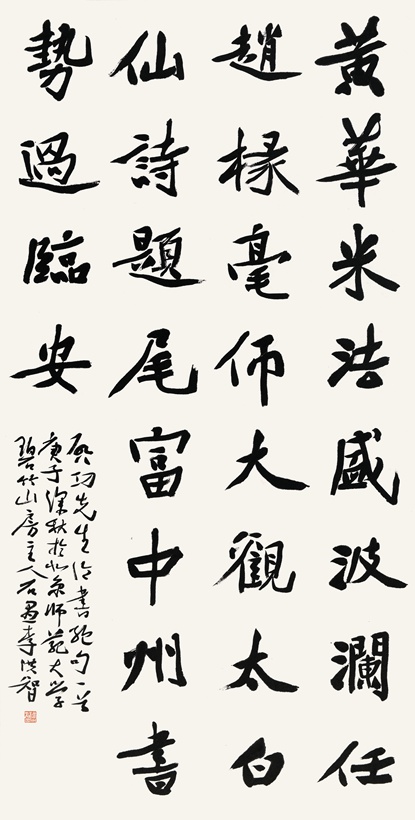 黃華米法盛波瀾任
趙椽毫仰大觀太白
仙詩題尾富中州書
勢過臨安
启功先生论書绝句一首
庚子深秋於北京师范大学
碧竹山房主人石愚李洪智